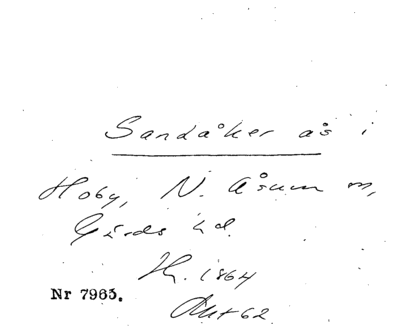 Sandåker ås i
Hoby, N. Åsum sn,
Gärds hd.
Hr. 1864
Nr 7965.
Akt 62